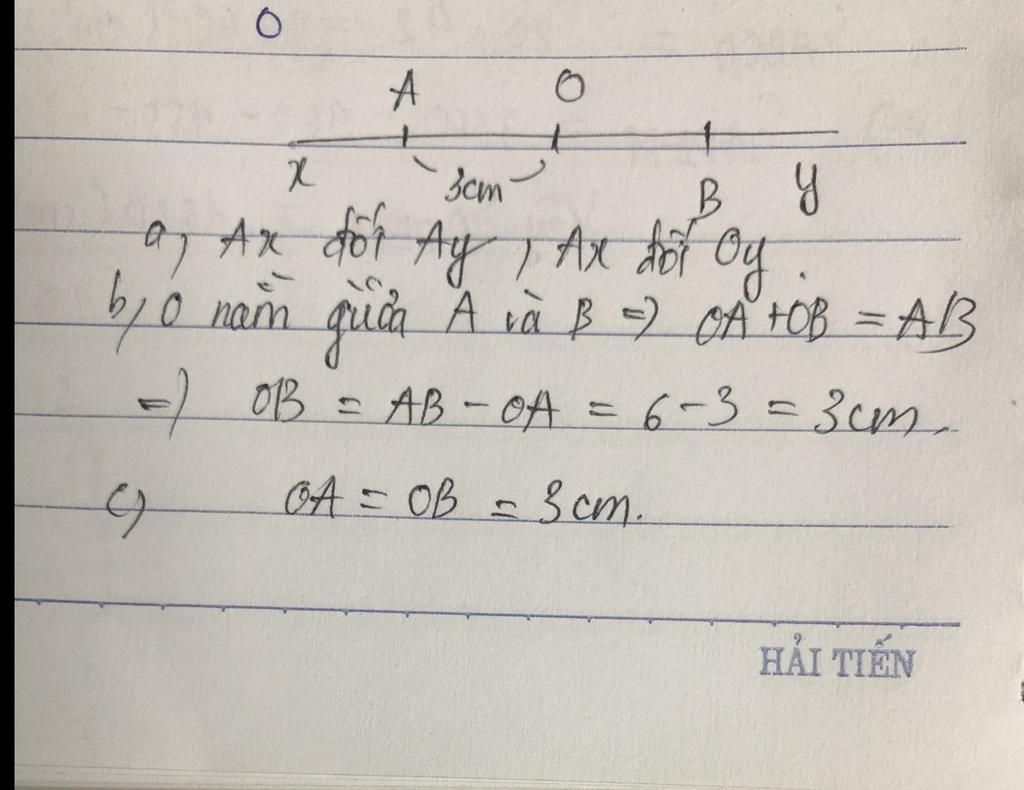 O
A O
x 3cm B y
a, Ax đối Ay, Ax đối Oy.
b, O nằm giữa A và B => OA + OB = AB
=> OB = AB - OA = 6 - 3 = 3cm.
c) OA = OB = 3cm.
HẢI TIẾN